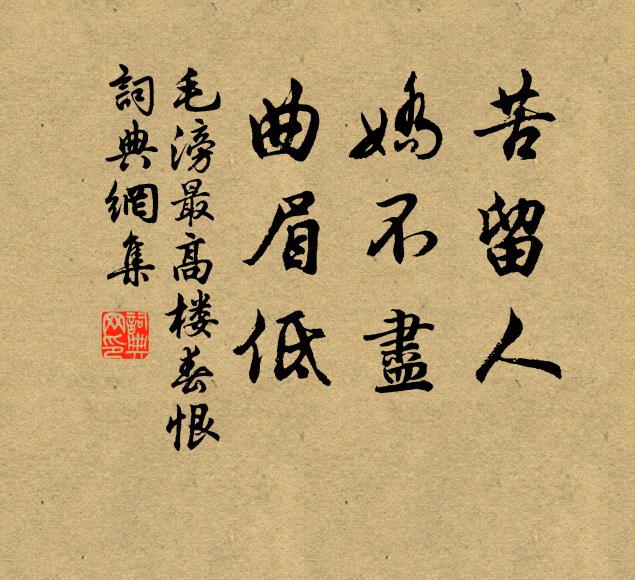 苦留人
嬌不盡
曲眉低
毛滂最高楼春恨
詞典網集
詞典网印